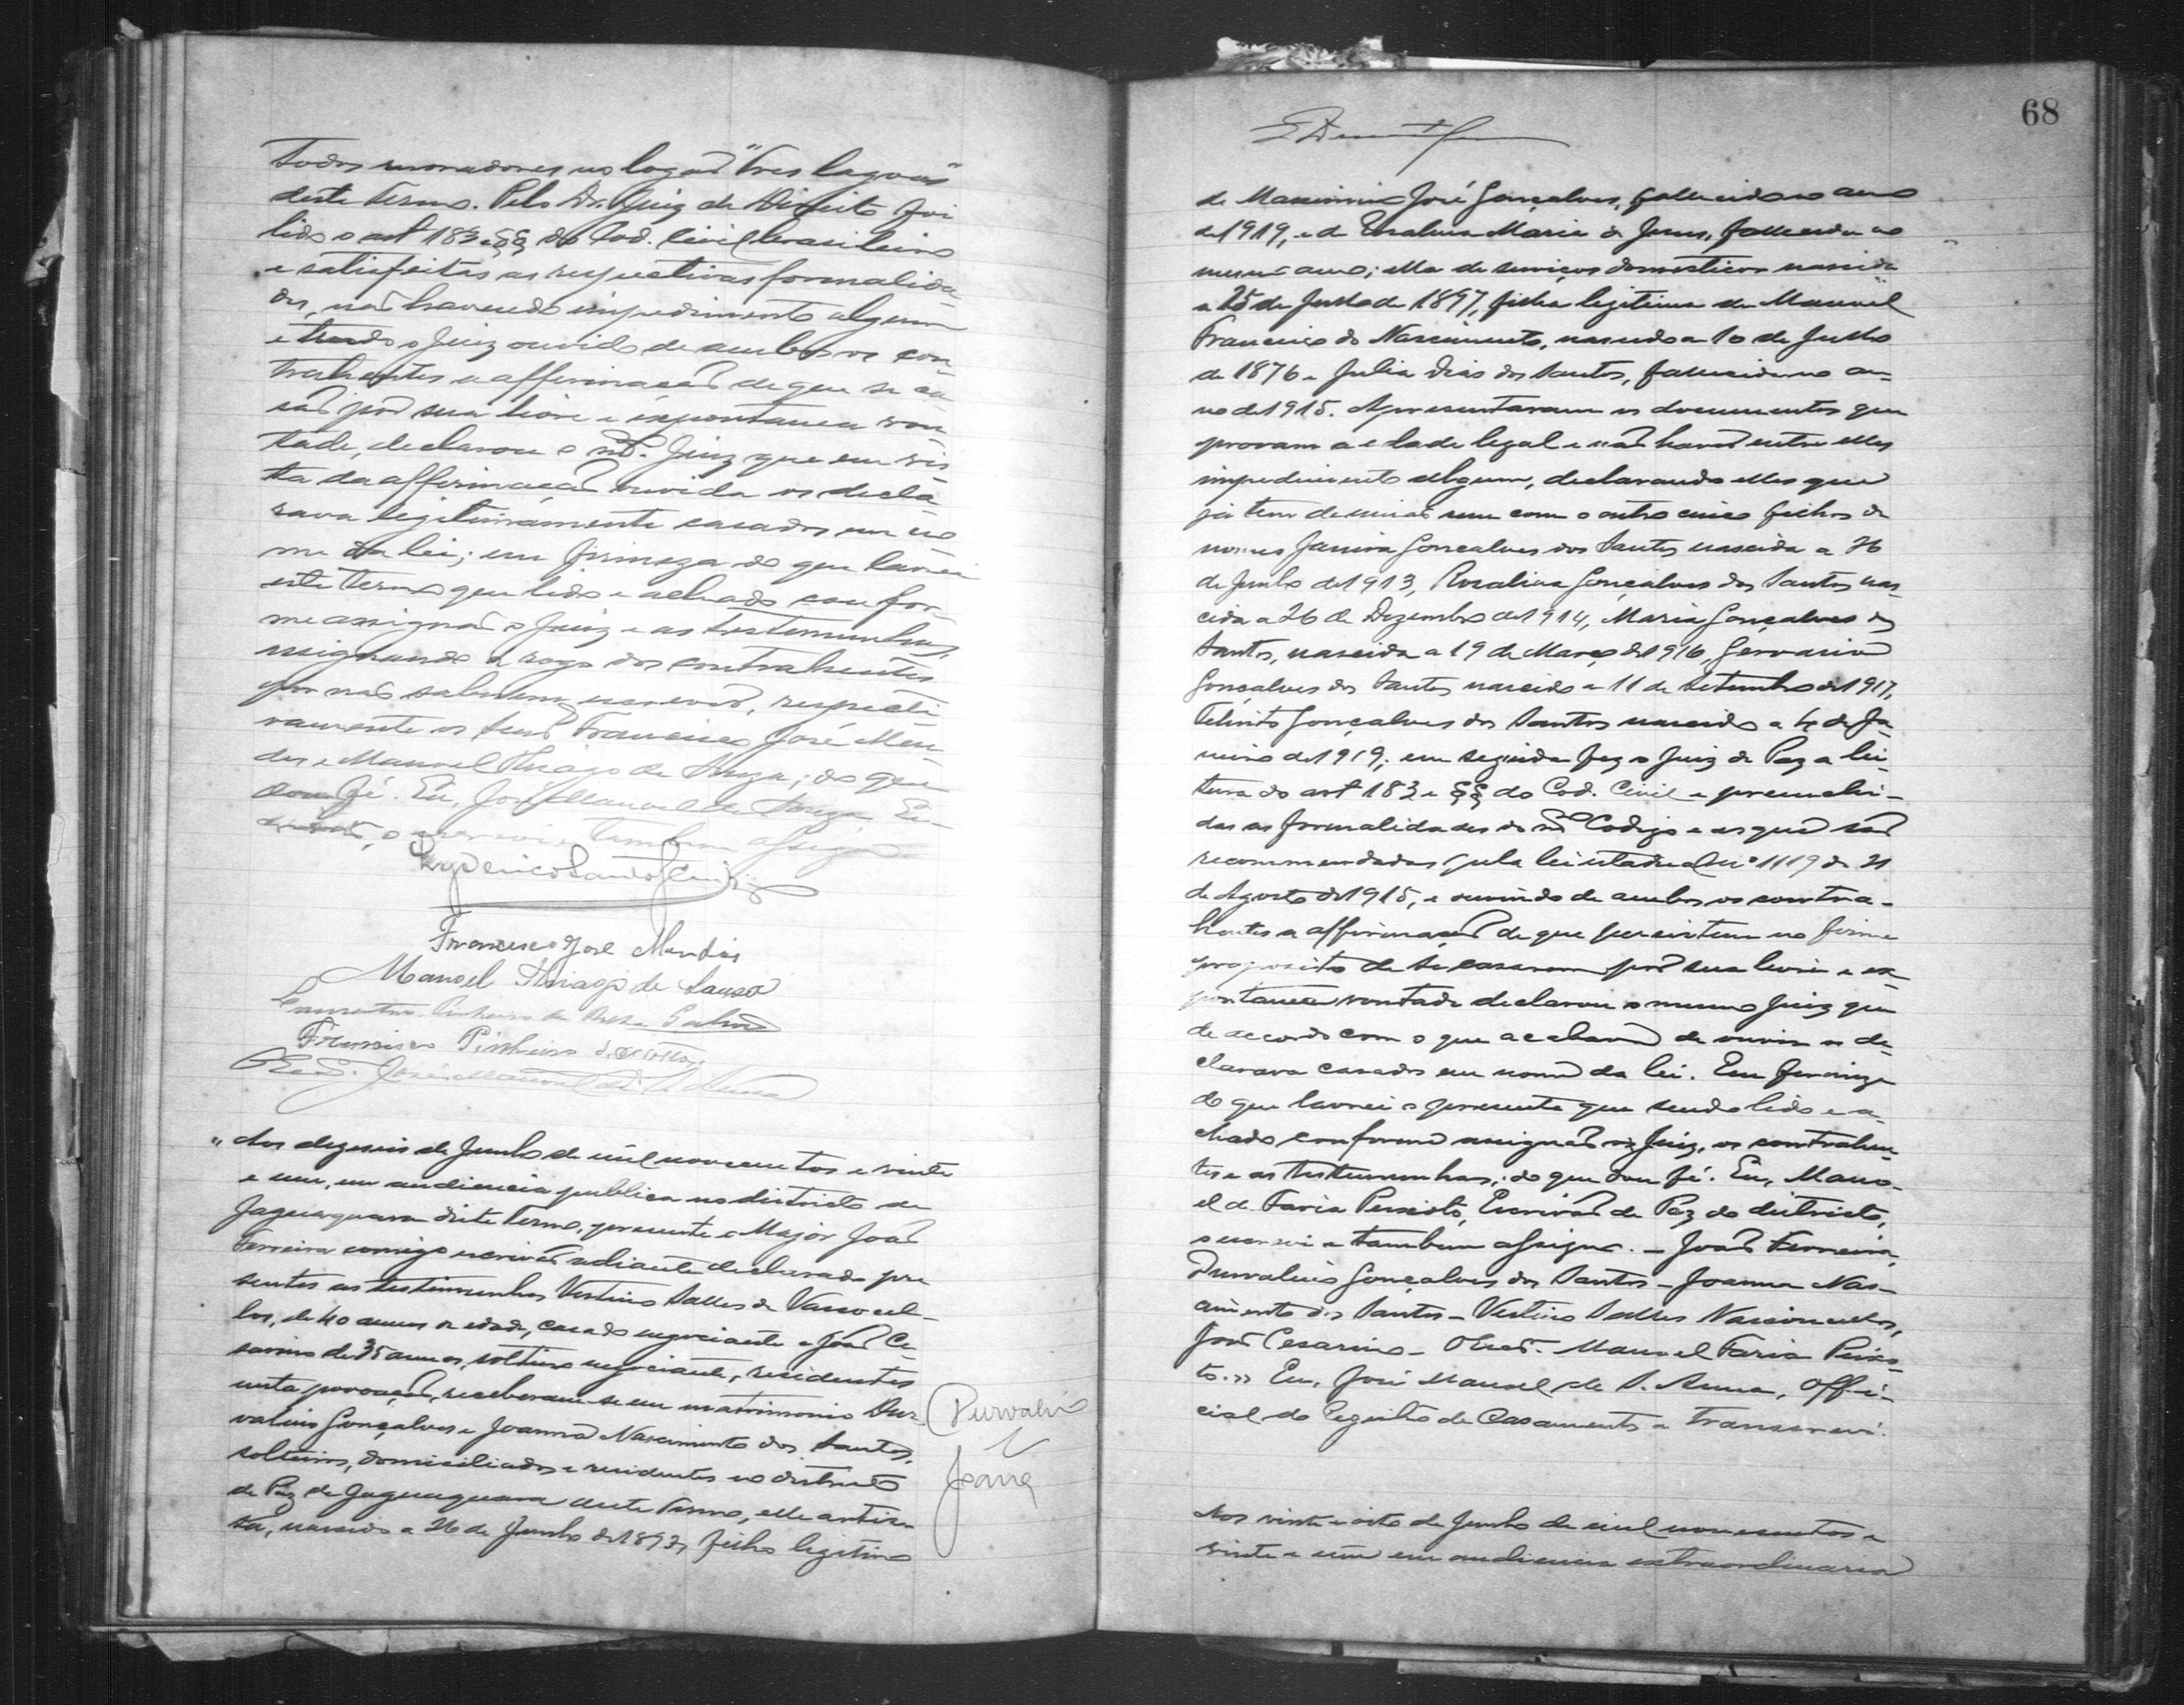 Todos moradores no logar "Tres lagôas"
deste Termo. Pelo Dr. Juiz de Direito foi
lido o art 183 e §§ do Cod. Civil brasileiro
e satisfeitas as respectivas formalida-
des, não havendo impedimento algum
e tendo o Juiz ouvido de ambos os con-
trahentes a affirmação de que se ca-
são por sua livre e expontanea von-
tade, declarou o mº. Juiz que em vis-
ta da affirmação ouvida os decla-
rava legitimamente casados em no-
me da lei; em firmeza do que lavrei
este termo que lido e achado confor-
me assignão o Juiz e as testemunhas,
assignando a rogo dos contrahentes
por não saberem escrever, respecti-
vamente os Senrs Francisco José Men-
des e Manoel Thiago de Souza; do que
dou fé. Eu, José Manoel de Es-
o escrevi e tambem assigno.
Francisco José Mendes
Manoel Thiago de Sousa
Pinheiro da
Francisco Pinheiro da
José Manoel de
"Aos dezeseis de Junho de mil novecentos e vinte
e um, em audiencia publica no districto de
Jaguaquara deste Termo, presente o Major João
Ferreira comigo escrivão adiante declarado pre-
sentes as testemunhas Vestino Salles de Vasconcel-
los, de 40 annos de edade, casado negociante e João Ce-
sarino de 35 annos, solteiro negociante, residentes
nesta povoação, receberam-se em matrimonio Dur-
valino Gonçalves e Joanna Nascimento dos Santos,
solteiros, domiciliados e residentes no districto
de Paz de Jaguaquara deste Termo, elle artis-
ta, nascido a 26 de Junho de 1893, filho legitimo
Durvalino
e
Joana
68
de José Gonçalves, fallecido no anno
de 1919, e de Maria de Jesus, fallecida no
mesmo anno; ella de serviços domesticos nascida
a 25 de Julho de 1897, filha legitima de Manoel
Francisco do Nascimento, nascido a 10 de Julho
de 1876 e Julia Dias dos Santos, fallecida no an-
no de 1915. Apresentaram os documentos que
provam a edade legal e não haver entre elles
impedimento algum, declarando elles que
já tem de união um com o outro cinco filhos de
nomes Janira Gonçalves dos Santos nascida a 26
de Junho de 1913, Rosalina Gonçalves dos Santos nas-
cida a 26 de Dezembro de 1914, Maria Gonçalves dos
Santos, nascida a 19 de Março de 1916, Gervasio
Gonçalves dos Santos nascido a 11 de Setembro de 1917,
Gonçalves dos Santos nascido a 4 de Ja-
neiro de 1919; em seguida fez o Juiz de Paz a lei-
tura do art 183 e §§ do Cod. Civil e preenchi-
das as formalidades do mº Codigo e as que são
recommendadas pela lei estadual nº 1119 de 21
de Agosto de 1915, e ouvindo de ambos os contra-
hentes a affirmação de que persistem no firme
proposito de se casarem por sua livre e ex-
pontanea vontade declarou o mesmo Juiz que
de accordo com o que acabava de ouvir os de-
clarava casados em nome da lei. Em firmeza
do que lavrei o presente que sendo lido e a-
chado conforme assignão o Juiz, os contrahen-
tes e as testemunhas; do que dou fé. Eu, Mano-
el de Faria Peixoto, Escrivão de Paz do districto,
o escrevi e tambem assigno. - João Ferreira,
Durvalino Gonçalves dos Santos - Joanna Nas-
cimento dos Santos - Vestino Salles Vasconcellos,
João Cesarino - O Escrº. Manoel Faria Peixo-
to.,, Eu, José Manoel de S. Anna, Offi-
cial do Registro de Casamento a transcrevi.
Aos vinte e oito de Junho de mil novecentos e
vinte e um em audiencia extraordinaria